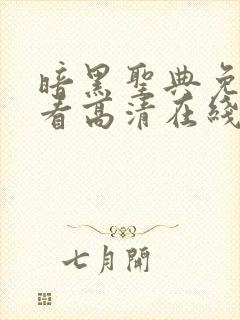 暗黑聖典免
看高清在綫
七月開